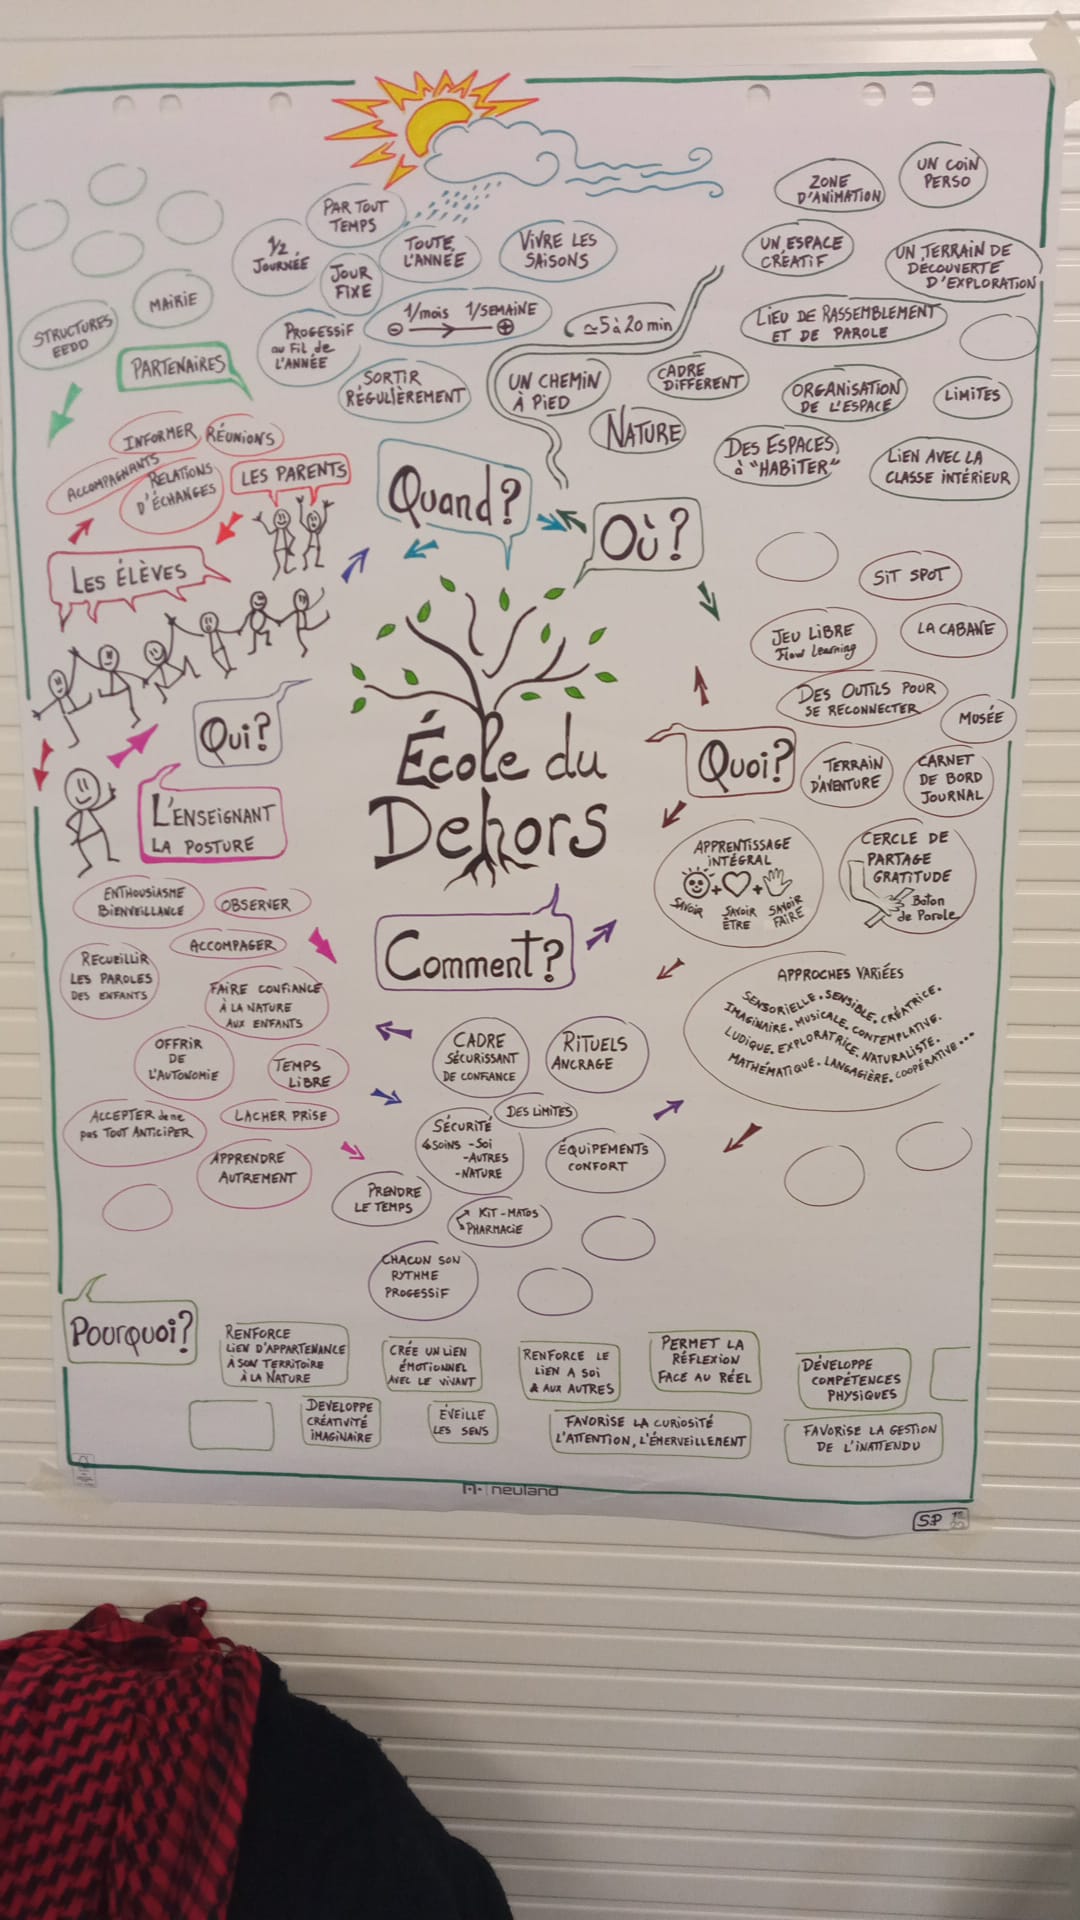 PAR TOUT
TEMPS
1/2
JOURNÉE
JOUR
FIXE
TOUTE
L'ANNÉE
VIVRE LES
SAISONS
1/mois 1/SEMAINE
PROGESSIF
au Fil de
L'ANNÉE
SORTIR
RÉGULIÈREMENT
Quand?
MAIRIE
STRUCTURES
EEDD
PARTENAIRES
INFORMER
RÉUNIONS
ACCOMPAGNANTS
RELATIONS
D'ÉCHANGES
LES PARENTS
LES ÉLÈVES
Qui?
L'ENSEIGNANT
LA POSTURE
ENTHOUSIASME
BIENVEILLANCE
OBSERVER
ACCOMPAGER
RECUEILLIR
LES PAROLES
DES ENFANTS
FAIRE CONFIANCE
À LA NATURE
AUX ENFANTS
OFFRIR
DE
L'AUTONOMIE
TEMPS
LIBRE
ACCEPTER de ne
pas TOUT ANTICIPER
LACHER PRISE
APPRENDRE
AUTREMENT
ZONE
D'ANIMATION
UN COIN
PERSO
UN ESPACE
CRÉATIF
UN TERRAIN DE
DÉCOUVERTE
D'EXPLORATION
LIEU DE RASSEMBLEMENT
ET DE PAROLE
≃5 à 20 min
UN CHEMIN
À PIED
CADRE
DIFFERENT
NATURE
ORGANISATION
DE L'ESPACE
LIMITES
DES ESPACES
à "HABITER"
LIEN AVEC LA
CLASSE INTÉRIEUR
OÙ?
École du
Dehors
SIT SPOT
JEU LIBRE
Flow Learning
LA CABANE
DES OUTILS POUR
SE RECONNECTER
MUSÉE
Quoi?
TERRAIN
D'AVENTURE
CARNET
DE BORD
JOURNAL
APPRENTISSAGE
INTÉGRAL
+ +
SAVOIR SAVOIR ÊTRE SAVOIR FAIRE
CERCLE DE
PARTAGE
GRATITUDE
Baton
de Parole
APPROCHES VARIÉES
SENSORIELLE. SENSIBLE. CRÉATRICE.
IMAGINAIRE. MUSICALE. CONTEMPLATIVE.
LUDIQUE. EXPLORATRICE. NATURALISTE.
MATHÉMATIQUE. LANGAGIÈRE. COOPÉRATIVE...
Comment?
CADRE
SÉCURISSANT
DE CONFIANCE
RITUELS
ANCRAGE
DES LIMITES
SÉCURITÉ
SOINS -SOI
-AUTRES
-NATURE
ÉQUIPEMENTS
CONFORT
PRENDRE
LE TEMPS
KIT-MATOS
PHARMACIE
CHACUN SON
RYTHME
PROGESSIF
Pourquoi?
RENFORCE
LIEN D'APPARTENANCE
À SON TERRITOIRE
À LA NATURE
CRÉE UN LIEN
ÉMOTIONNEL
AVEC LE VIVANT
RENFORCE LE
LIEN A SOI
& AUX AUTRES
PERMET LA
RÉFLEXION
FACE AU RÉEL
DÉVELOPPE
COMPÉTENCES
PHYSIQUES
DEVELOPPE
CRÉATIVITÉ
IMAGINAIRE
ÉVEILLE
LES SENS
FAVORISE LA CURIOSITÉ
L'ATTENTION, L'ÉMERVEILLEMENT
FAVORISE LA GESTION
DE L'INATTENDU
neuland
S.P